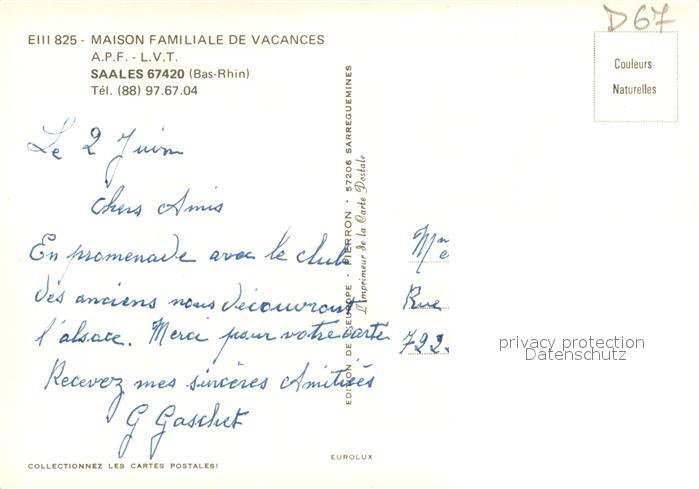 D67
EIII 825 - MAISON FAMILIALE DE VACANCES
A.P.F. - L.V.T.
SAALES 67420 (Bas-Rhin)
Tél. (88) 97.67.04
Couleurs
Naturelles
Le 2 Juin
Chers Amis
En promenade avec le club
des anciens nous découvront
l'alsace. Merci pour votre carte
Recevez mes sincères Amitiées
G Gaschet
EDITION DE L'EUROPE - PIERRON - 57206 SARREGUEMINES
L'Imprimeur de la Carte Postale
Rue
722
privacy protection
Datenschutz
EUROLUX
COLLECTIONNEZ LES CARTES POSTALES!